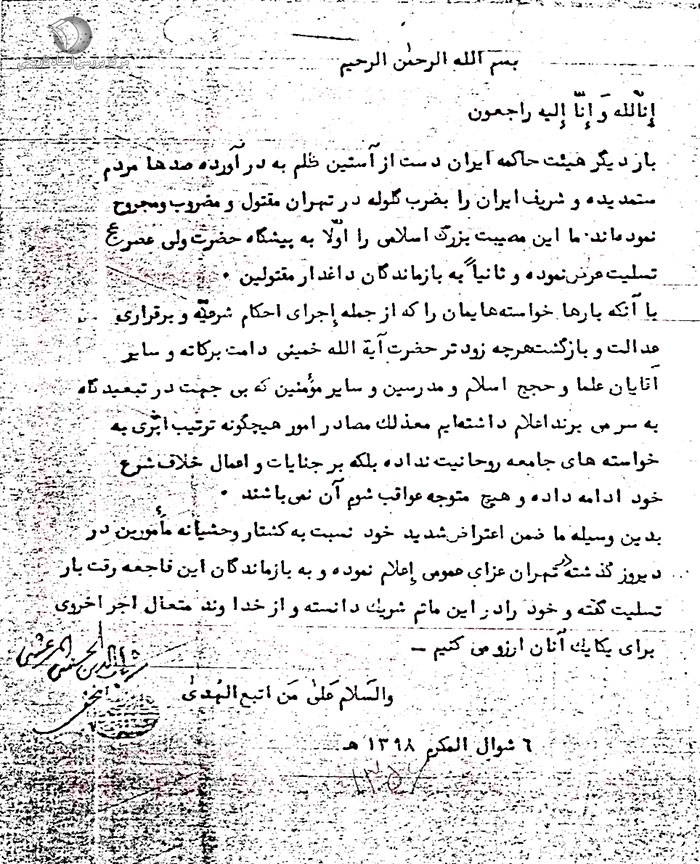 مرکز بررسی اسناد تاریخی
بسم الله الرحمن الرحیم
إنّالله وَ إنّا إلیه راجعون
بار دیگر هیئت حاکمه ایران دست از آستین ظلم به در آورده صدها مردم
ستمدیده و شریف ایران را بضرب گلوله در تهران مقتول و مضروب ومجروح
نموده‌اند. ما این مصیبت بزرگ اسلامی را اوّلا به پیشگاه حضرت ولی عصر ع
تسلیت عرض نموده و ثانیاً به بازماندگان داغدار مقتولین .
با آنکه بارها خواسته‌هایمان را که از جمله إجرای احکام شرعیّه و برقراری
عدالت و بازگشت هرچه زودتر حضرت آیة الله خمینی دامت برکاته و سایر
آقایان علما و حجج اسلام و مدرسین و سایر مؤمنین که بی جهت در تبعیدگاه
به سر می برند اعلام داشته‌ایم معذلك مصادر امور هیچگونه ترتیب اثری به
خواسته های جامعه روحانیت نداده بلکه بر جنایات و اعمال خلاف شرع
خود ادامه داده و هیچ متوجه عواقب شوم آن نمی‌باشند .
بدین وسیله ما ضمن اعتراض شدید خود نسبت به کشتار وحشیانه مأمورین در
دیروز گذشته در تهران عزای عمومی إعلام نموده و به بازماندگان این فاجعه رقت بار
تسلیت گفته و خود را در این ماتم شریك دانسته و از خدا وند متعال اجر اخروی
برای یکایك آنان ارزو می کنیم ـ
والسلام علی من اتبع الهدی
شهاب الدین الحسینی المرعشی
النجفی
٦ شوال المکرم ١٣٩٨ هـ